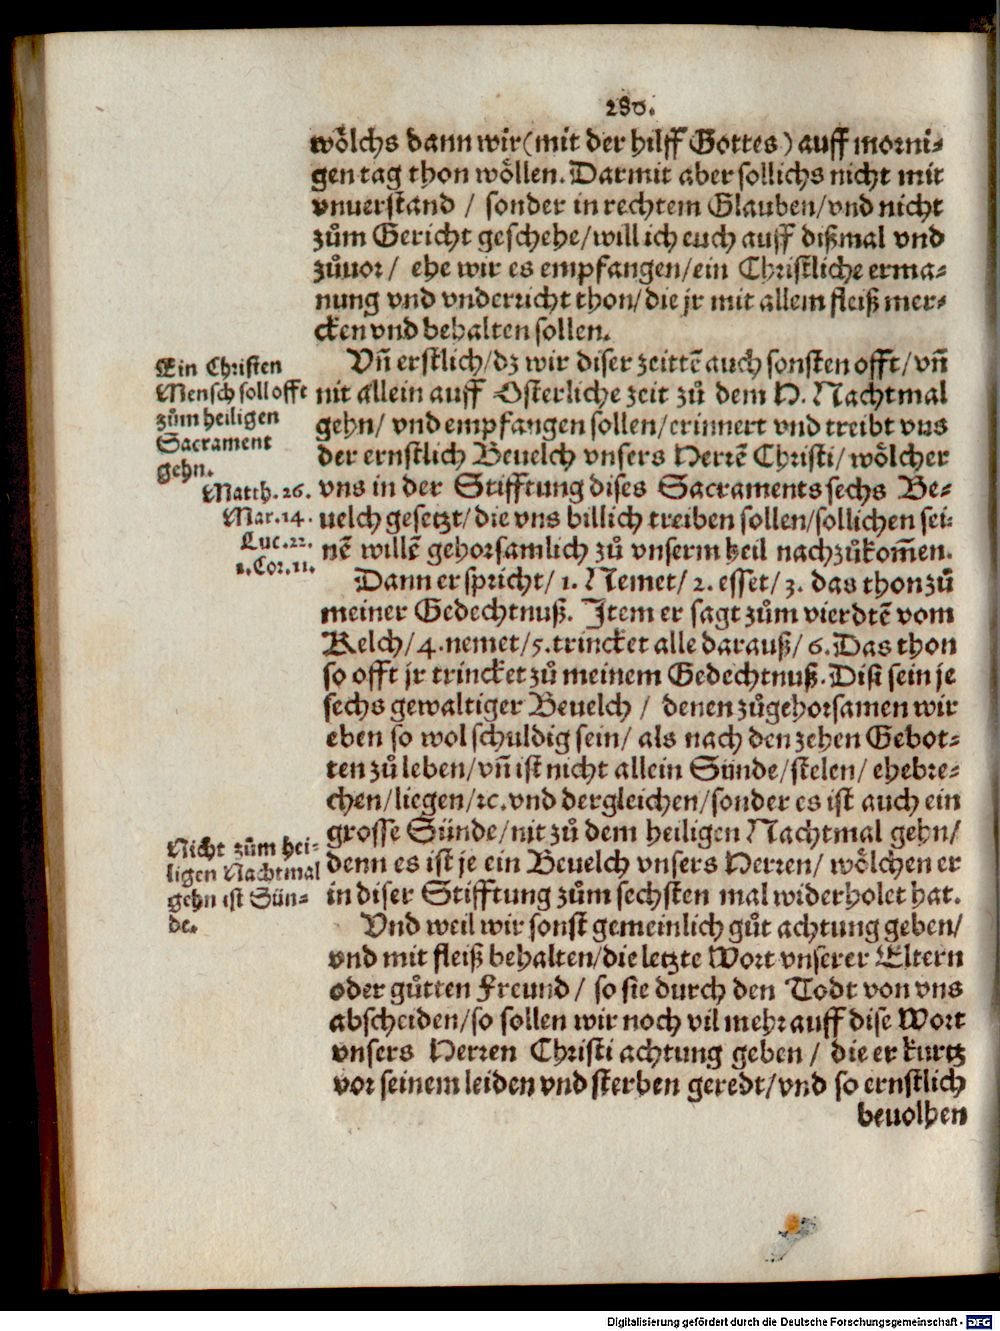 280.
wölchs dann wir (mit der hilff Gottes) auff morni-
gen tag thon wöllen. Darmit aber sollichs nicht mit
vnuerstand / sonder in rechtem Glauben/vnd nicht
zům Gericht geschehe/will ich euch auff dißmal vnd
zůuor / ehe wir es empfangen/ein Christliche erma-
nung vnd vnderricht thon/die jr mit allem fleiß mer-
cken vnd behalten sollen.
Vñ erstlich/dz wir diser zeittẽ auch sonsten offt/vñ
nit allein auff Osterliche zeit zů dem H. Nachtmal
gehn/ vnd empfangen sollen/erinnert vnd treibt vns
der ernstlich Beuelch vnsers Herrẽ Christi/ wölcher
vns in der Stifftung dises Sacraments sechs Be-
uelch gesetzt/die vns billich treiben sollen/sollichen sei-
nẽ willẽ gehorsamlich zů vnserm heil nachzůkom̃en.
Ein Christen
Mensch soll offt
zům heiligen
Sacrament
gehn.
Matth.26.
Mar.14.
Luc.22.
1.Cor.11.
Dann er spricht/ 1. Nemet/ 2. esset/ 3. das thon zů
meiner Gedechtnuß. Item er sagt zům vierdtẽ vom
Kelch/ 4. nemet/ 5. trincket alle darauß/ 6. Das thon
so offt jr trincket zů meinem Gedechtnuß. Dist sein je
sechs gewaltiger Beuelch / denen zůgehorsamen wir
eben so wol schuldig sein/ als nach den zehen Gebot-
ten zů leben/vñ ist nicht allein Sünde/stelen/ ehebre-
chen/liegen/ꝛc.vnd dergleichen/sonder es ist auch ein
grosse Sünde/nit zů dem heiligen Nachtmal gehn/
denn es ist je ein Beuelch vnsers Herren/ wölchen er
in diser Stifftung zům sechsten mal widerholet hat.
Nicht zům hei-
ligen Nachtmal
gehn ist Sün-
de.
Vnd weil wir sonst gemeinlich gůt achtung geben/
vnd mit fleiß behalten/die letzte Wort vnserer Eltern
oder gůtten Freund / so sie durch den Todt von vns
abscheiden/so sollen wir noch vil mehr auff dise Wort
vnsers Herren Christi achtung geben / die er kurtz
vor seinem leiden vnd sterben geredt/vnd so ernstlich
beuolhen
Digitalisierung gefördert durch die Deutsche Forschungsgemeinschaft - DFG